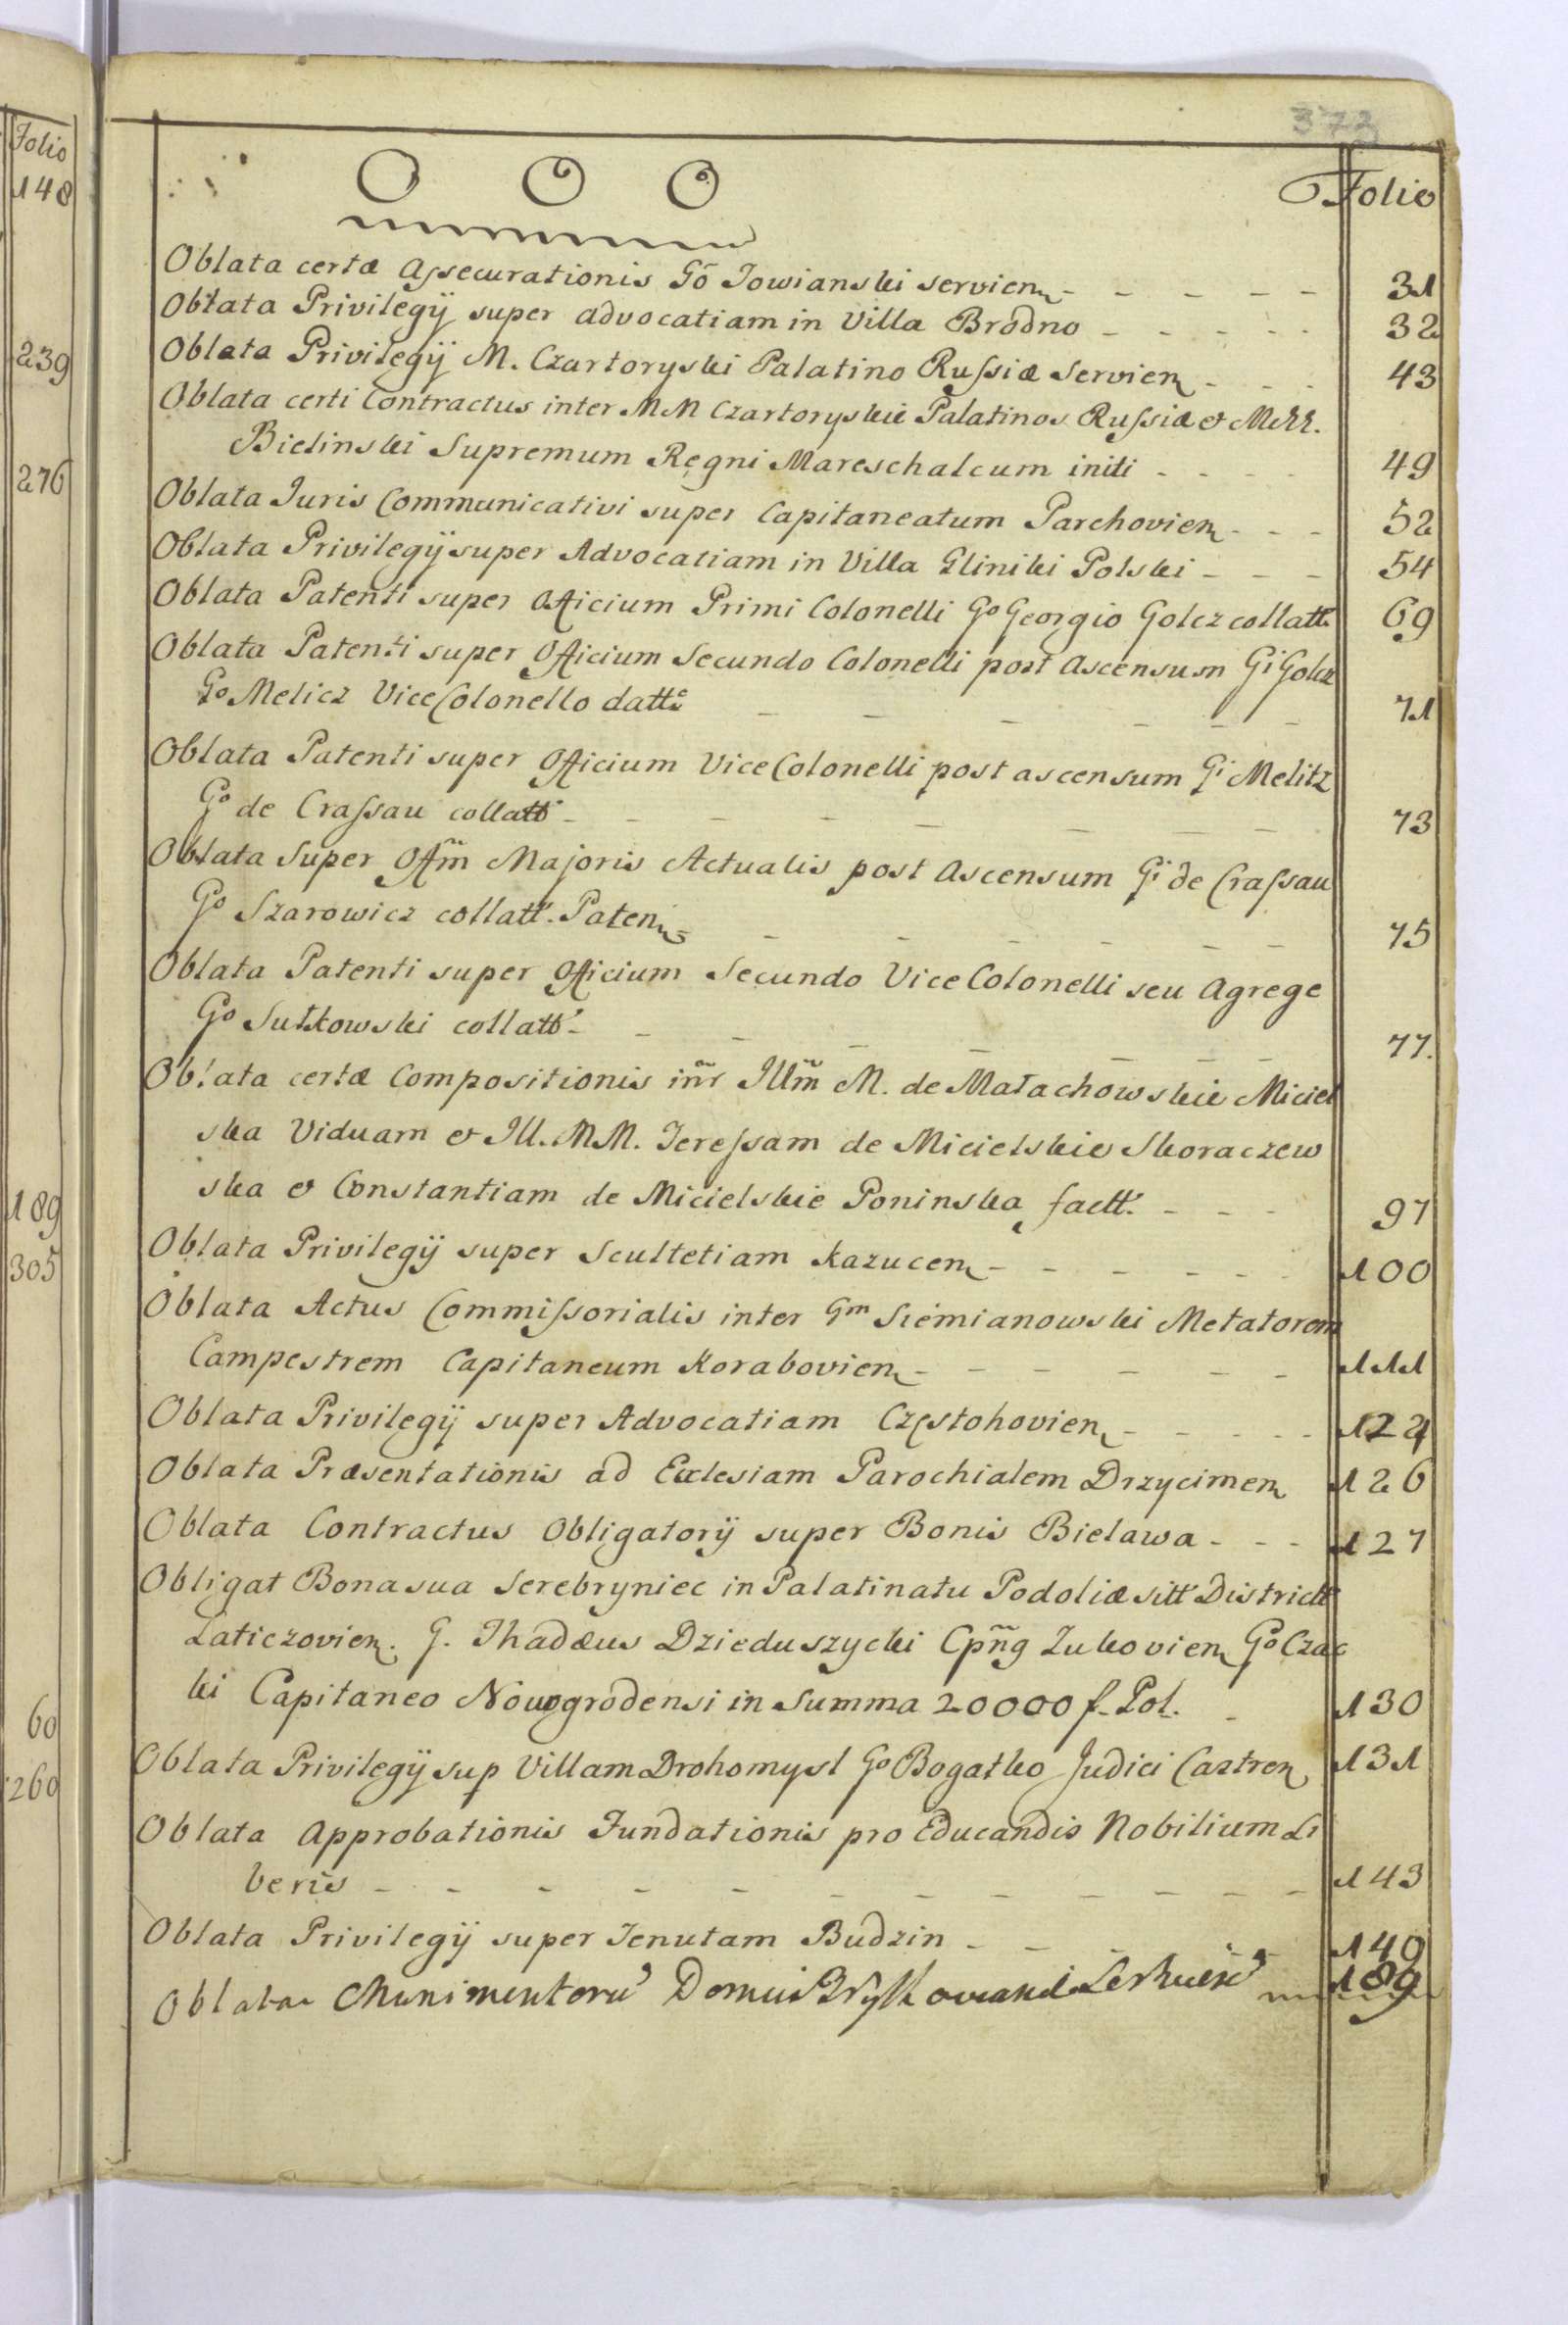 373
Folio
148
239
276
189
305
60
260
O O O Folio
Oblata certæ Assecurationis Gō Jowianski servien 31
Oblata Privilegij super advocatiam in Villa Brodno 32
Oblata Privilegij M. Czartoryski Palatino Russiæ Servien 43
Oblata certi Contractus inter MM Czartoryskie Palatinos Russiæ et
Bielinski Supremum Regni Mareschalcum initi 49
Oblata Juris Communicativi super Capitaneatum Parchovien 52
Oblata Privilegij super Advocatiam in Villa Gliniki Polski 54
Oblata Patenti super Officium Primi Colonelli Go Georgio Golcz collatt. 69
Oblata Patenti super Officium Secundo Colonelli post Ascensum Gi Golcz
Go Melicz Vice Colonello datt. 71
Oblata Patenti super Officium Vice Colonelli post ascensum Gi Melitz
Go de Crassau collatt. 73
Oblata Super Offm̃ Majoris Actualis post Ascensum Gi de Crassau
Go Szarowicz collatt. Paten 75
Oblata Patenti super Officium Secundo Vice Colonelli seu Agrege
Go Sułkowski collatt. 77.
Oblata certæ Compositionis iñr Illm̃ M. de Małachowskie Miciel
ska Viduam et Ill. MM. Teressam de Micielskie Skoraczew
ska et Constantiam de Micielskie Poninska factt. 97
Oblata Privilegij super Scultetiam Kazucen 100
Oblata Actus Commissorialis inter Gm Siemianowski Metatorem
Campestrem Capitaneum Korabovien 111
Oblata Privilegij super Advocatiam Częstohovien 124
Oblata Præsentationis ad Ecclesiam Parochialem Drzycimen 126
Oblata Contractus Obligatorij super Bonis Bielawa 127
Obligat Bona sua Serebryniec in Palatinatu Podoliæ sitt. Districtt.
Laticzovien. G. Thadæus Dzieduszycki Cpñg Zukovien Go Czac
ki Capitaneo Nowogrodensi in Summa 20000 f. Pol. 130
Oblata Privilegij sup Villam Drohomysl Go Bogatko Judici Castren 131
Oblata Approbationis Fundationis pro Educandis Nobilium Li
beris 143
Oblata Privilegij super Tenutam Budzin 149
Oblata Munimentorū Domus 189